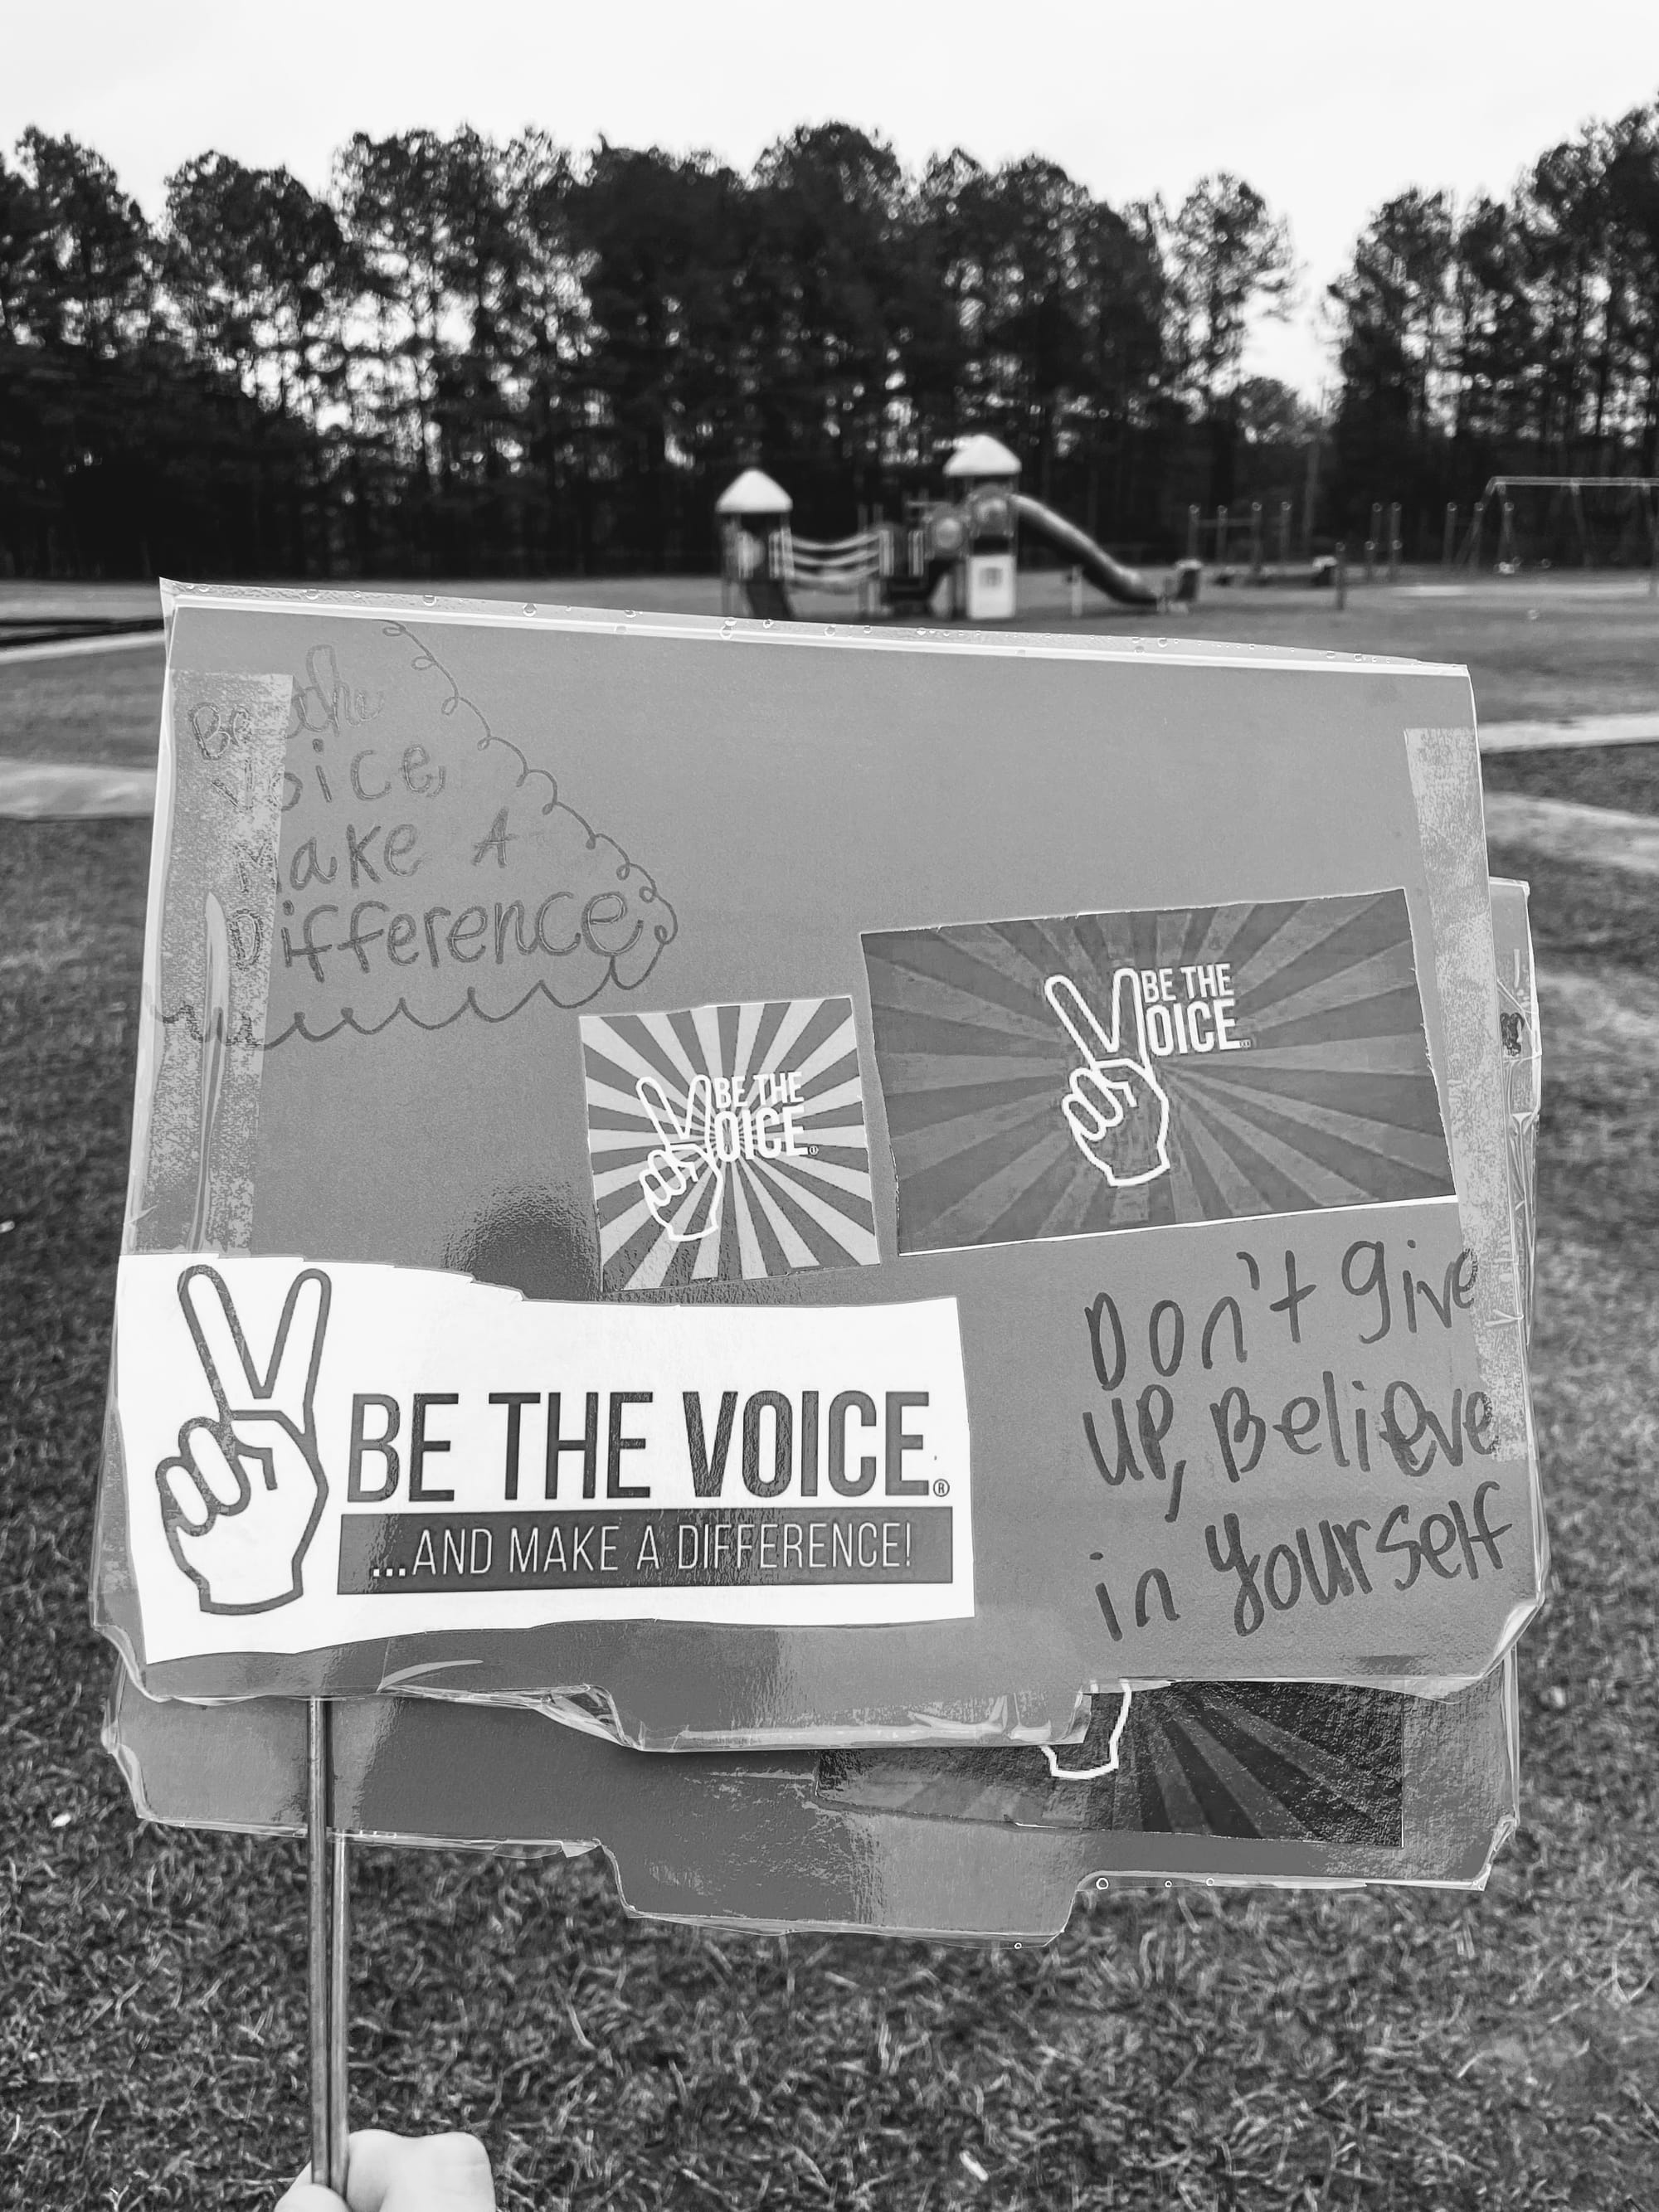 Be the
Voice,
Make A
Difference
BE THE
VOICE
BE THE
VOICE
BE THE VOICE®
...AND MAKE A DIFFERENCE!
Don't give
up, Believe
in yourself